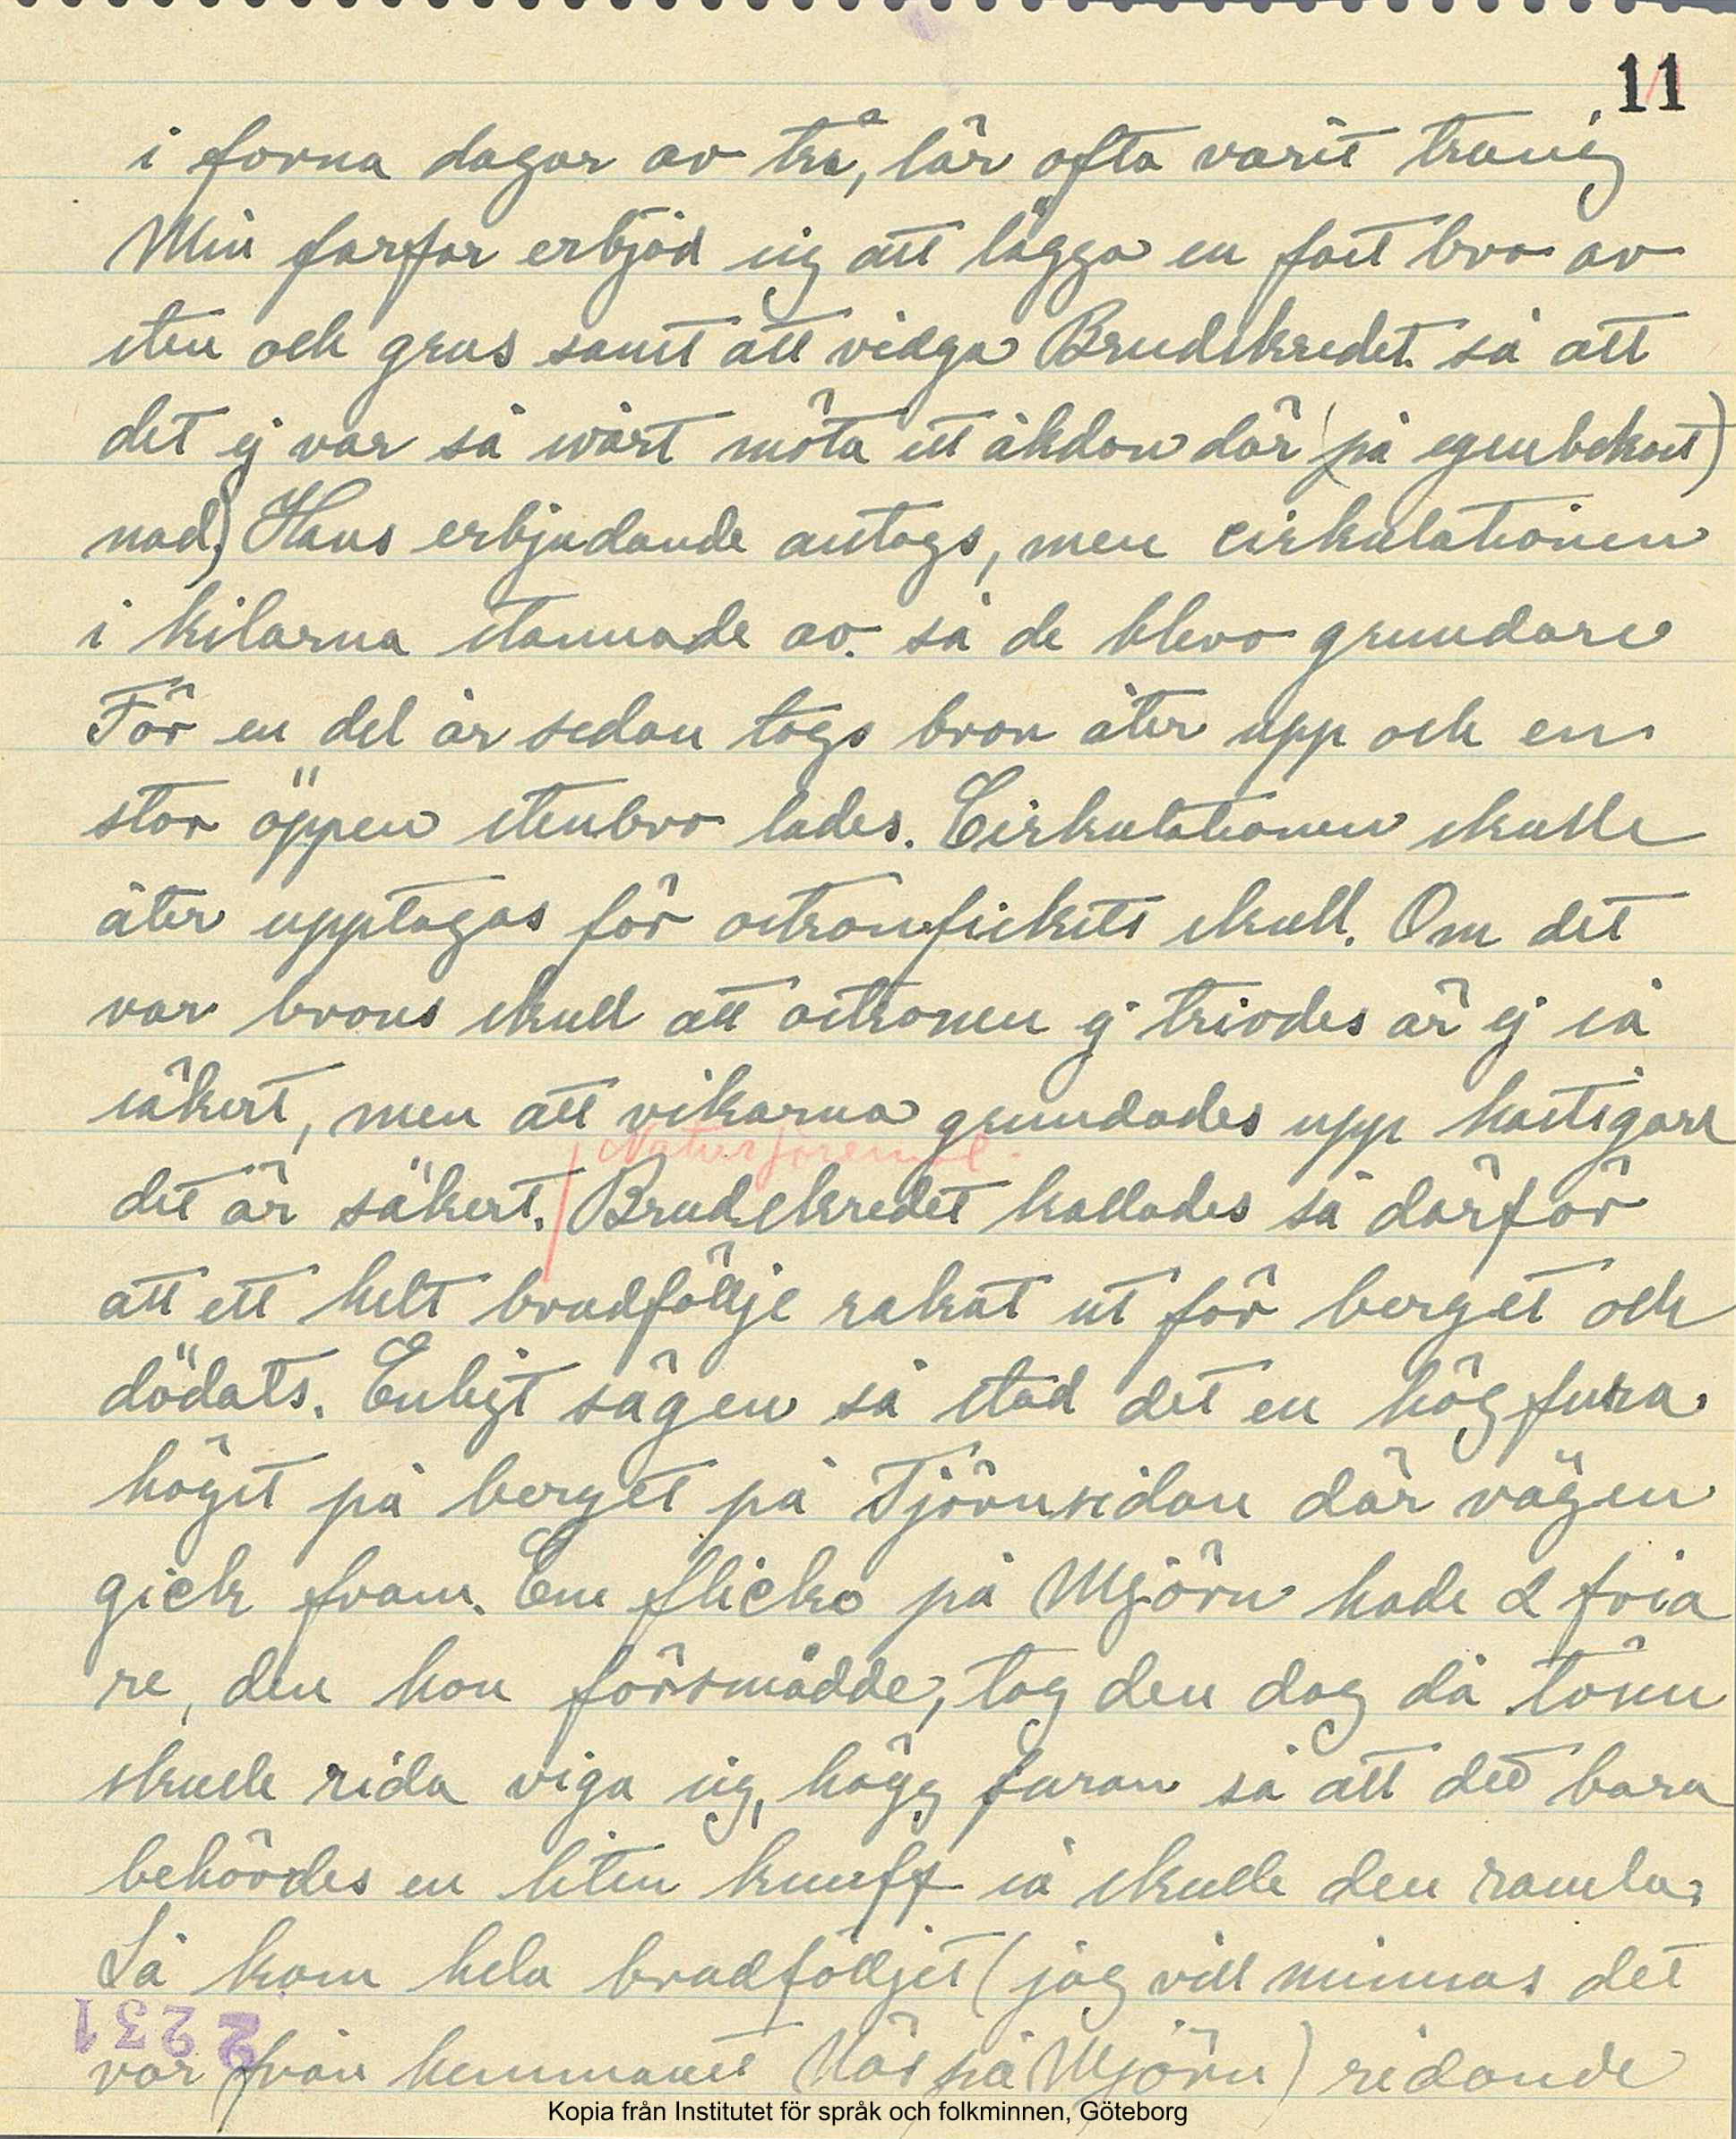 11
i forna dagar av trä, lär ofta varit trasig
Min farfar erbjöd sig att lägga en fast bro av
sten och grus samt att vidga Brudskredet så att
det ej var så svårt möta ett åkdon där (på egen bekost)
nad) Hans erbjudande antogs, men cirkulationen
i kilarna stannade av. så de blevo grundare
För en del år sedan togs bron åter upp och en
stor öppen stenbro lades. Cirkulationen skulle
åter upptagas för ostronfiskets skull. Om det
var brons skull att ostronen ej trivdes är ej så
säkert, men att vikarna grundades upp hastigare
Naturföremål.
det är säkert. Brudskredet kallades så därför
att ett helt brudföllje rakat ut för berget och
dödats. Enligt sägen så stod det en hög fura
högst på berget på Tjörnsidan där vägen
gick fram. En flicka på Mjörn hade 2 fria
re, den hon försmådde, tog den dag då
skulle rida viga sig, högg furan så att det bara
behövdes en liten knuff så skulle den ramla,
Så kom hela brudfölljet (jag vill minnas det
var från hemmanet Näs på Mjörn) ridande
2231
Kopia från Institutet för språk och folkminnen, Göteborg